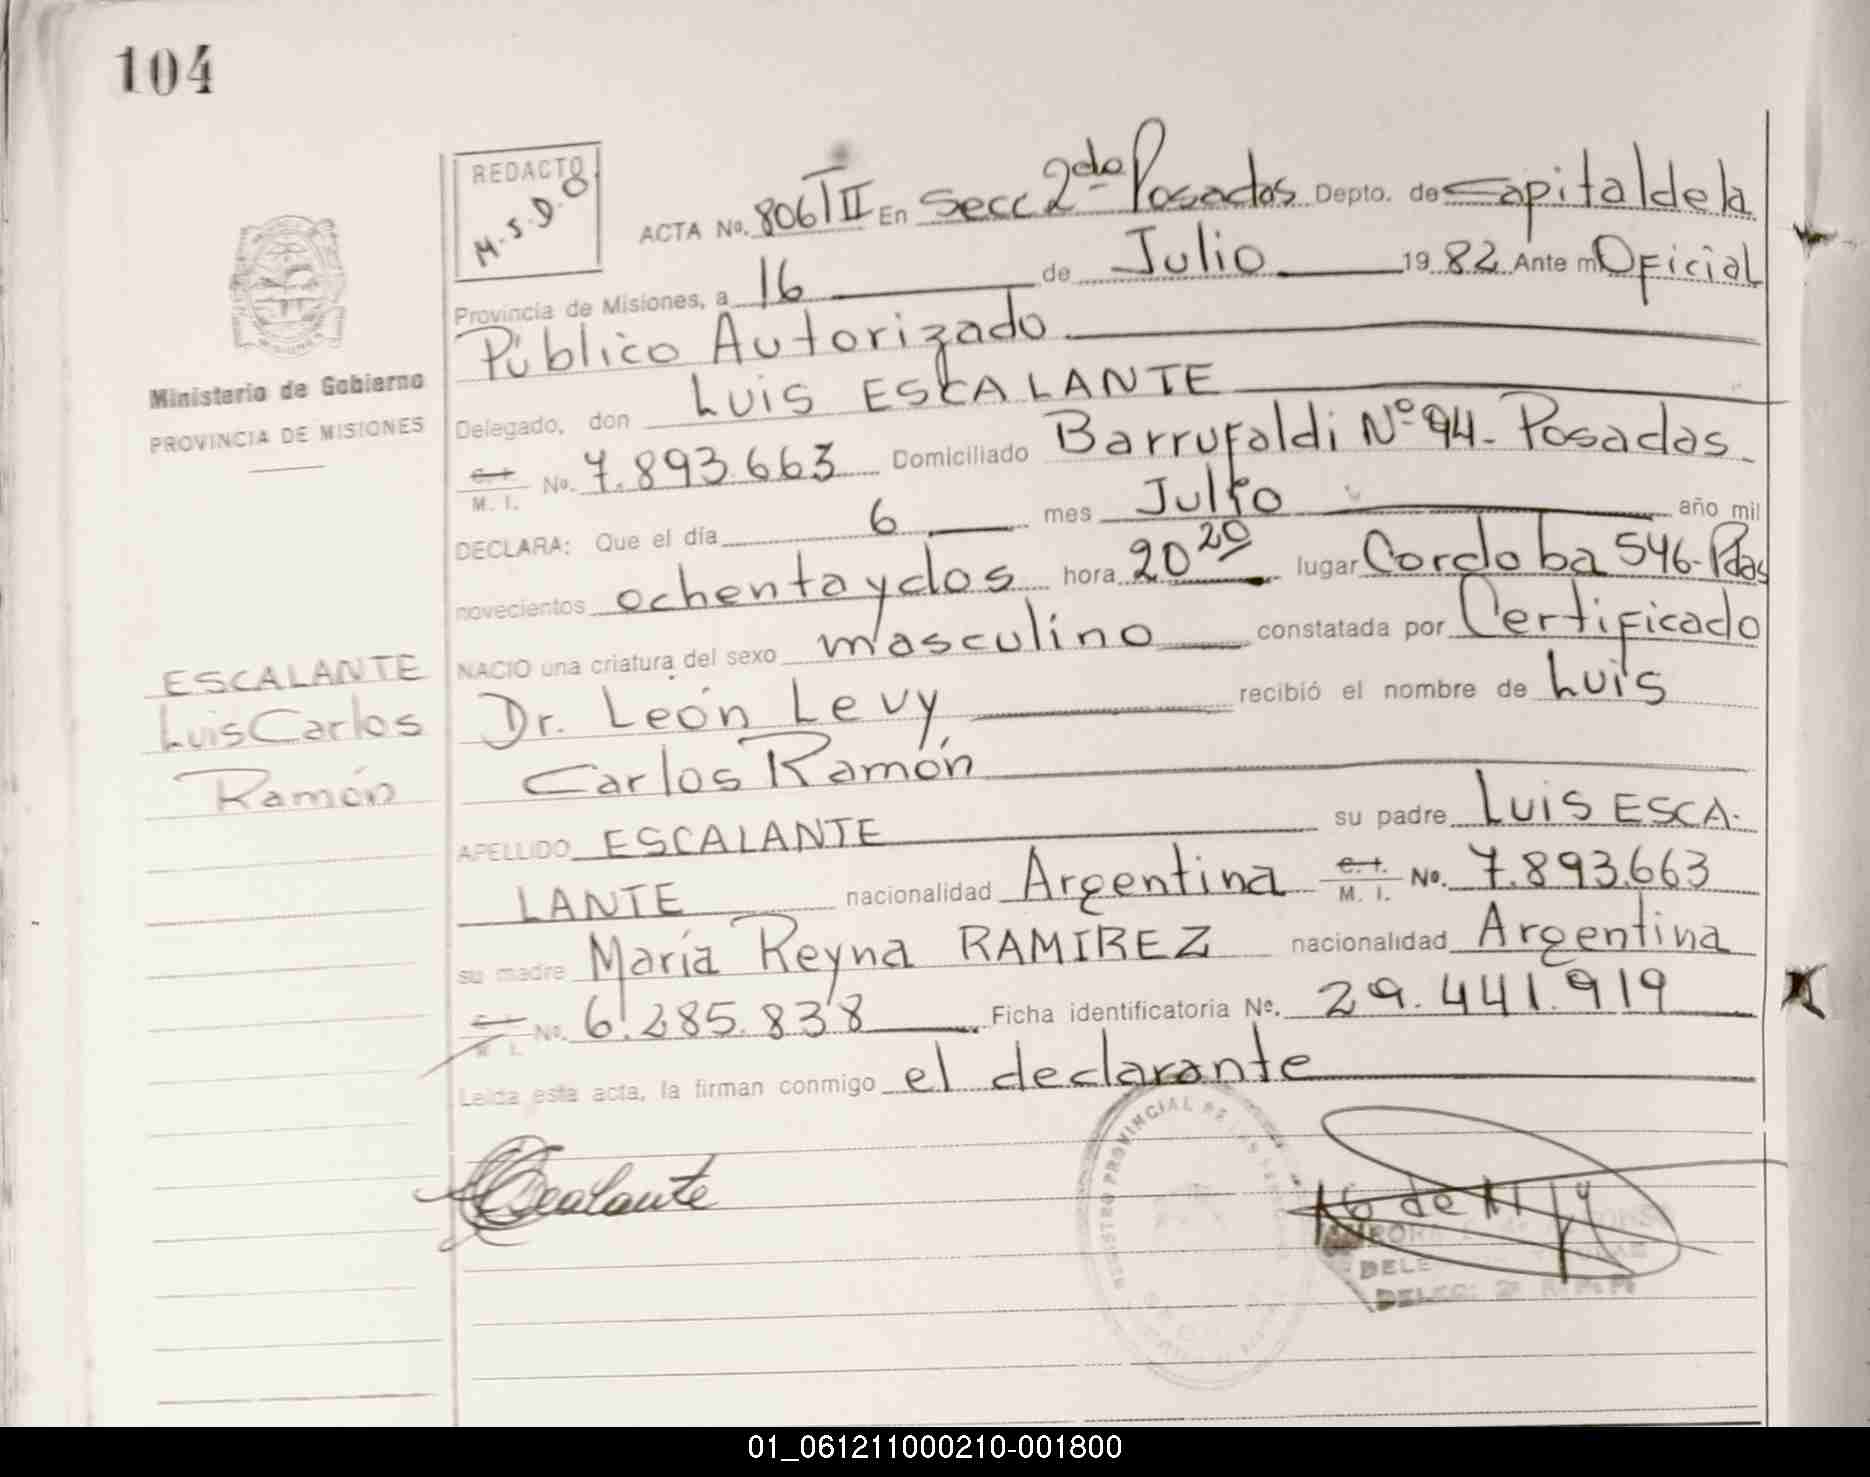 104
REDACTO
M.S.D.O
ACTA No. 806 T II En Secc 2da Posadas Depto. de Capital de la
Provincia de Misiones, a 16 de Julio 1982 Ante mi Oficial
Público Autorizado
Ministerio de Gobierno
PROVINCIA DE MISIONES
Delegado, don Luis ESCALANTE
C. I. M. I. No. 7.893.663 Domiciliado Barrufaldi Nº 94- Posadas
DECLARA: Que el día 6 mes Julio año mil
novecientos ochenta y dos hora 20 20 lugar Cordoba 546- Pdas
NACIO una criatura del sexo masculino constatada por Certificado
ESCALANTE
Luis Carlos
Ramón
Dr. León Levy recibió el nombre de Luis
Carlos Ramón
APELLIDO ESCALANTE su padre Luis ESCA-
LANTE nacionalidad Argentina C. I. M. I. No. 7.893.663
su madre María Reyna RAMIREZ nacionalidad Argentina
M. I. No. 6.285.838 Ficha identificatoria No. 29.441.919
Leída esta acta, la firman conmigo el declarante
Escalante
REGISTRO PROVINCIAL DE LAS PERSONAS
01_061211000210-001800